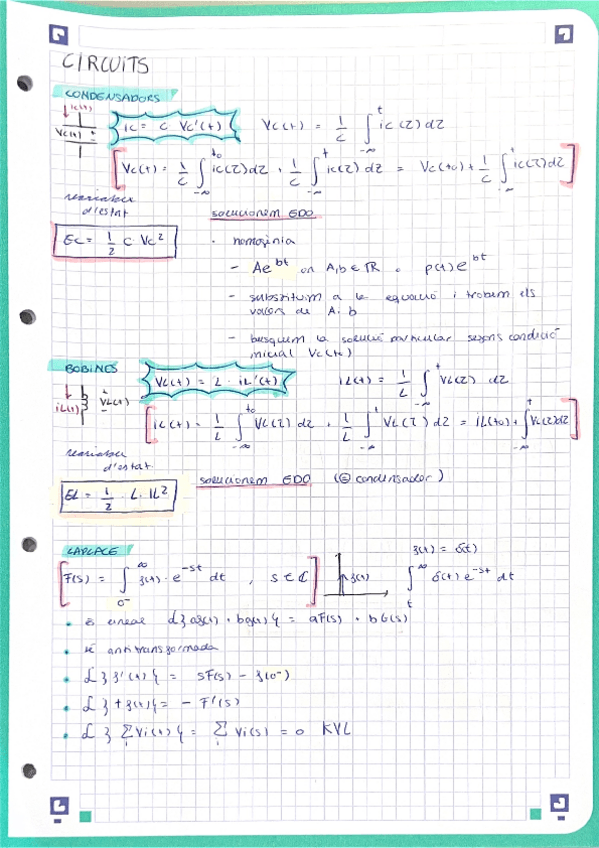 CIRCUITS
CONDENSADORS
ic(t)
Vc(t)
ic = C Vc'(t)
Vc(t) = 1/C ∫_{-∞}^{t} ic(τ) dτ
[Vc(t) = 1/C ∫_{-∞}^{t0} ic(τ)dτ + 1/C ∫_{-∞}^{t} ic(τ) dτ = Vc(t0) + 1/C ∫_{-∞}^{t} ic(τ)dτ]
d'estat
Ec = 1/2 C · Vc²
solucionem EDO
· homogènia
- Ae^{bt} on A,b ∈ ℝ o p(t)e^{bt}
- substituim a la equació i trobem els
valors de A, b
- busquem la solució particular segons condició
inicial Vc(t0)
BOBINES
iL(t)
VL(t)
VL(t) = L · iL'(t)
iL(t) = 1/L ∫_{-∞}^{t} VL(τ) dτ
[iL(t) = 1/L ∫_{-∞}^{t0} VL(τ) dτ + 1/L ∫_{-∞}^{t} VL(τ) dτ = iL(t0) + ∫_{-∞}^{t} VL(τ)dτ]
d'estat
EL = 1/2 · L · IL²
solucionem EDO (≡ condensador)
LAPLACE
[F(s) = ∫_{0⁻}^{∞} f(t) · e^{-st} dt , s ∈ ℂ]
f(t)
f(t) = δ(t)
∫_{t}^{∞} δ(t) e^{-st} dt
• és lineal ℒ{af(t) + bg(t)} = aF(s) + bG(s)
• té antitransformada
• ℒ{f'(t)} = sF(s) - f(0⁻)
• ℒ{tf(t)} = - F'(s)
• ℒ{∑_i Vi(t)} = ∑_i Vi(s) = 0 KVL